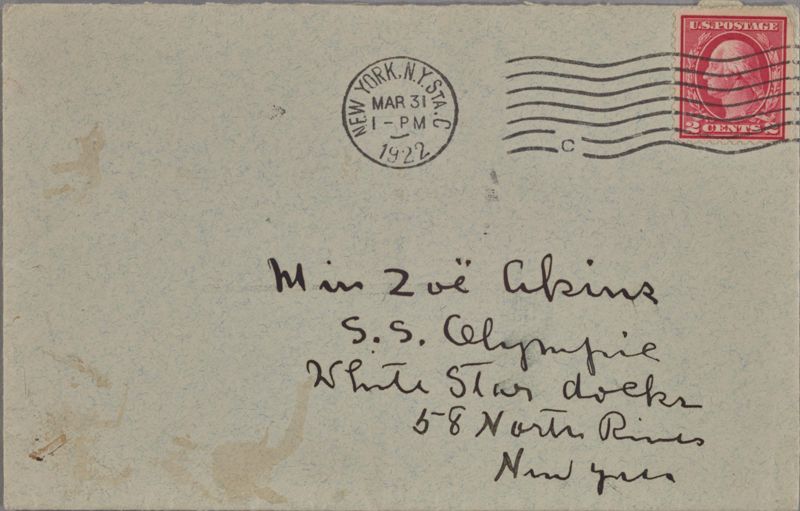 U.S. POSTAGE
2 CENTS 2
NEW YORK, N.Y. STA. C
MAR 31
1 - PM
1922
C
Miss Zoë Akins
S.S. Olympic
White Star docks
58 North River
New York